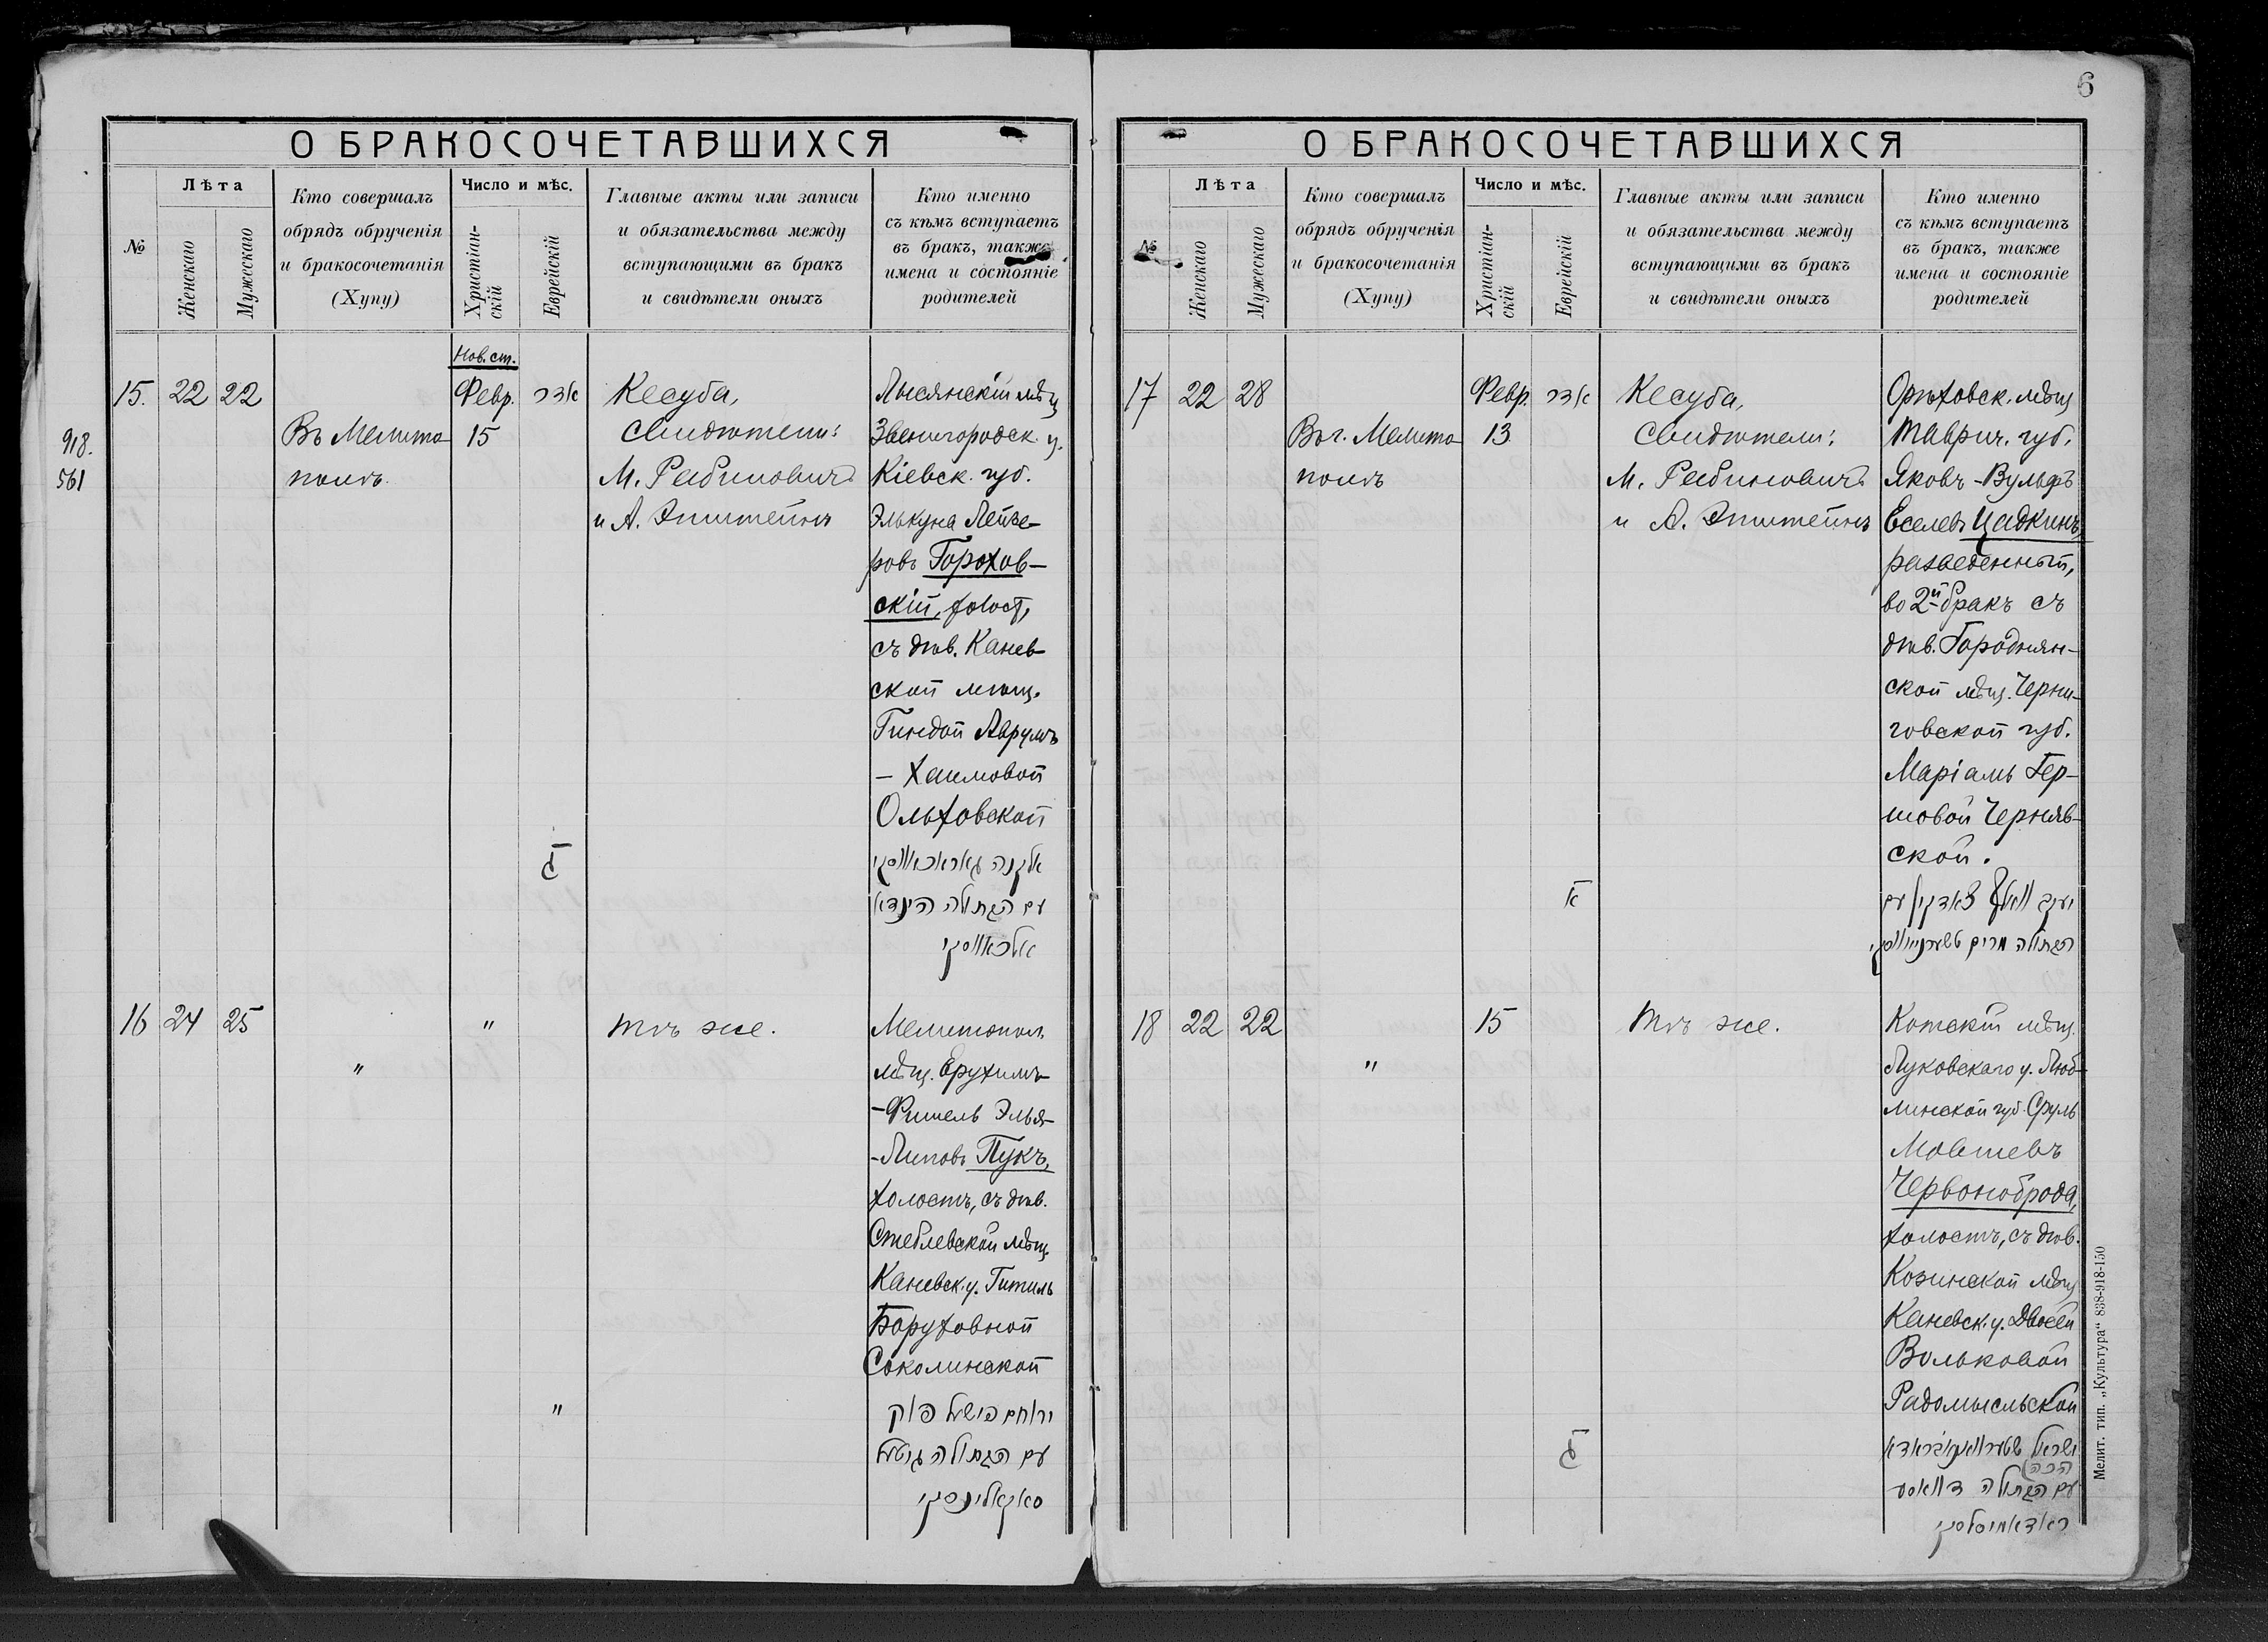 О БРАКОСОЧЕТАВШИХСЯ
№
Лѣта
Женскаго
Мужескаго
Кто совершалъ
обрядъ обрученія
и бракосочетанія
(Хупу)
Число и мѣс.
Христіан-
скій
Еврейскій
Главные акты или записи
и обязательства между
вступающими въ бракъ
и свидѣтели оныхъ
Кто именно
съ кѣмъ вступаетъ
въ бракъ, также
имена и состояніе
родителей
918.
561
15. 22 22
Въ Мелито-
полѣ
Нов. ст.
Февр.
15
אדר
ג
Кесуба,
Свидѣтели:
М. Рабиновичъ
и А. Эпштейнъ
Лысянскій мѣщ
Звенигородск. у.
Кіевск. губ.
Элькуна Лейзе-
ровъ Горохов-
скій, холост,
съ дѣв. Канев-
ской мѣщ.
Гиндой Аврумъ
- Хаимовой
Ольховской
אלקנה גאראכאווסקי
עם הבתולה הינדא
אלכאווסקי
16 24 25
"
"
"
Тѣ же.
Мелитопол.
мѣщ. Ерухимъ-
-Фишель Элья-
-Липовъ Пукъ,
холостъ, съ дѣв.
Стеблевской мѣщ.
Каневск. у. Гитиль
Боруховной
Соколинской
ירוחם פישעל פוק
עם הבתולה גיטעל
סאקאלינסקי
6
О БРАКОСОЧЕТАВШИХСЯ
№
Лѣта
Женскаго
Мужескаго
Кто совершалъ
обрядъ обрученія
и бракосочетанія
(Хупу)
Число и мѣс.
Христіан-
скій
Еврейскій
Главные акты или записи
и обязательства между
вступающими въ бракъ
и свидѣтели оныхъ
Кто именно
съ кѣмъ вступаетъ
въ бракъ, также
имена и состояніе
родителей
17 22 28
Въ г. Мелито-
полѣ
Февр.
13
אדר
א
Кесуба,
Свидѣтели:
М. Рабиновичъ
и А. Эпштейнъ
Орѣховск. мѣщ
Таврич. губ.
Яковъ-Вульфъ
Еселевъ Цадкинъ,
разведенный,
во 2й бракъ съ
дѣв. Городнян-
ской мѣщ. Черни-
говской губ.
Маріамъ Гер-
шовой Черняв-
ской.
יעקב וואלף צאדקין עם
הבתולה מרים טשערניאווסקי
18 22 22
"
15
ג
Тѣ же.
Котскій мѣщ.
Луковскаго у. Люб-
линской губ. Сруль
Мовшевъ
Червоноброда,
холостъ, съ дѣв.
Козинской мѣщ
Каневск. у. Двосей
Вольковой
Радомысльской
ישראל טשערוואנאבראדא
עם הבתולה דוואסע
ראדאמיסלסקי
Мелит. тип. „Культура“ 838-918-150